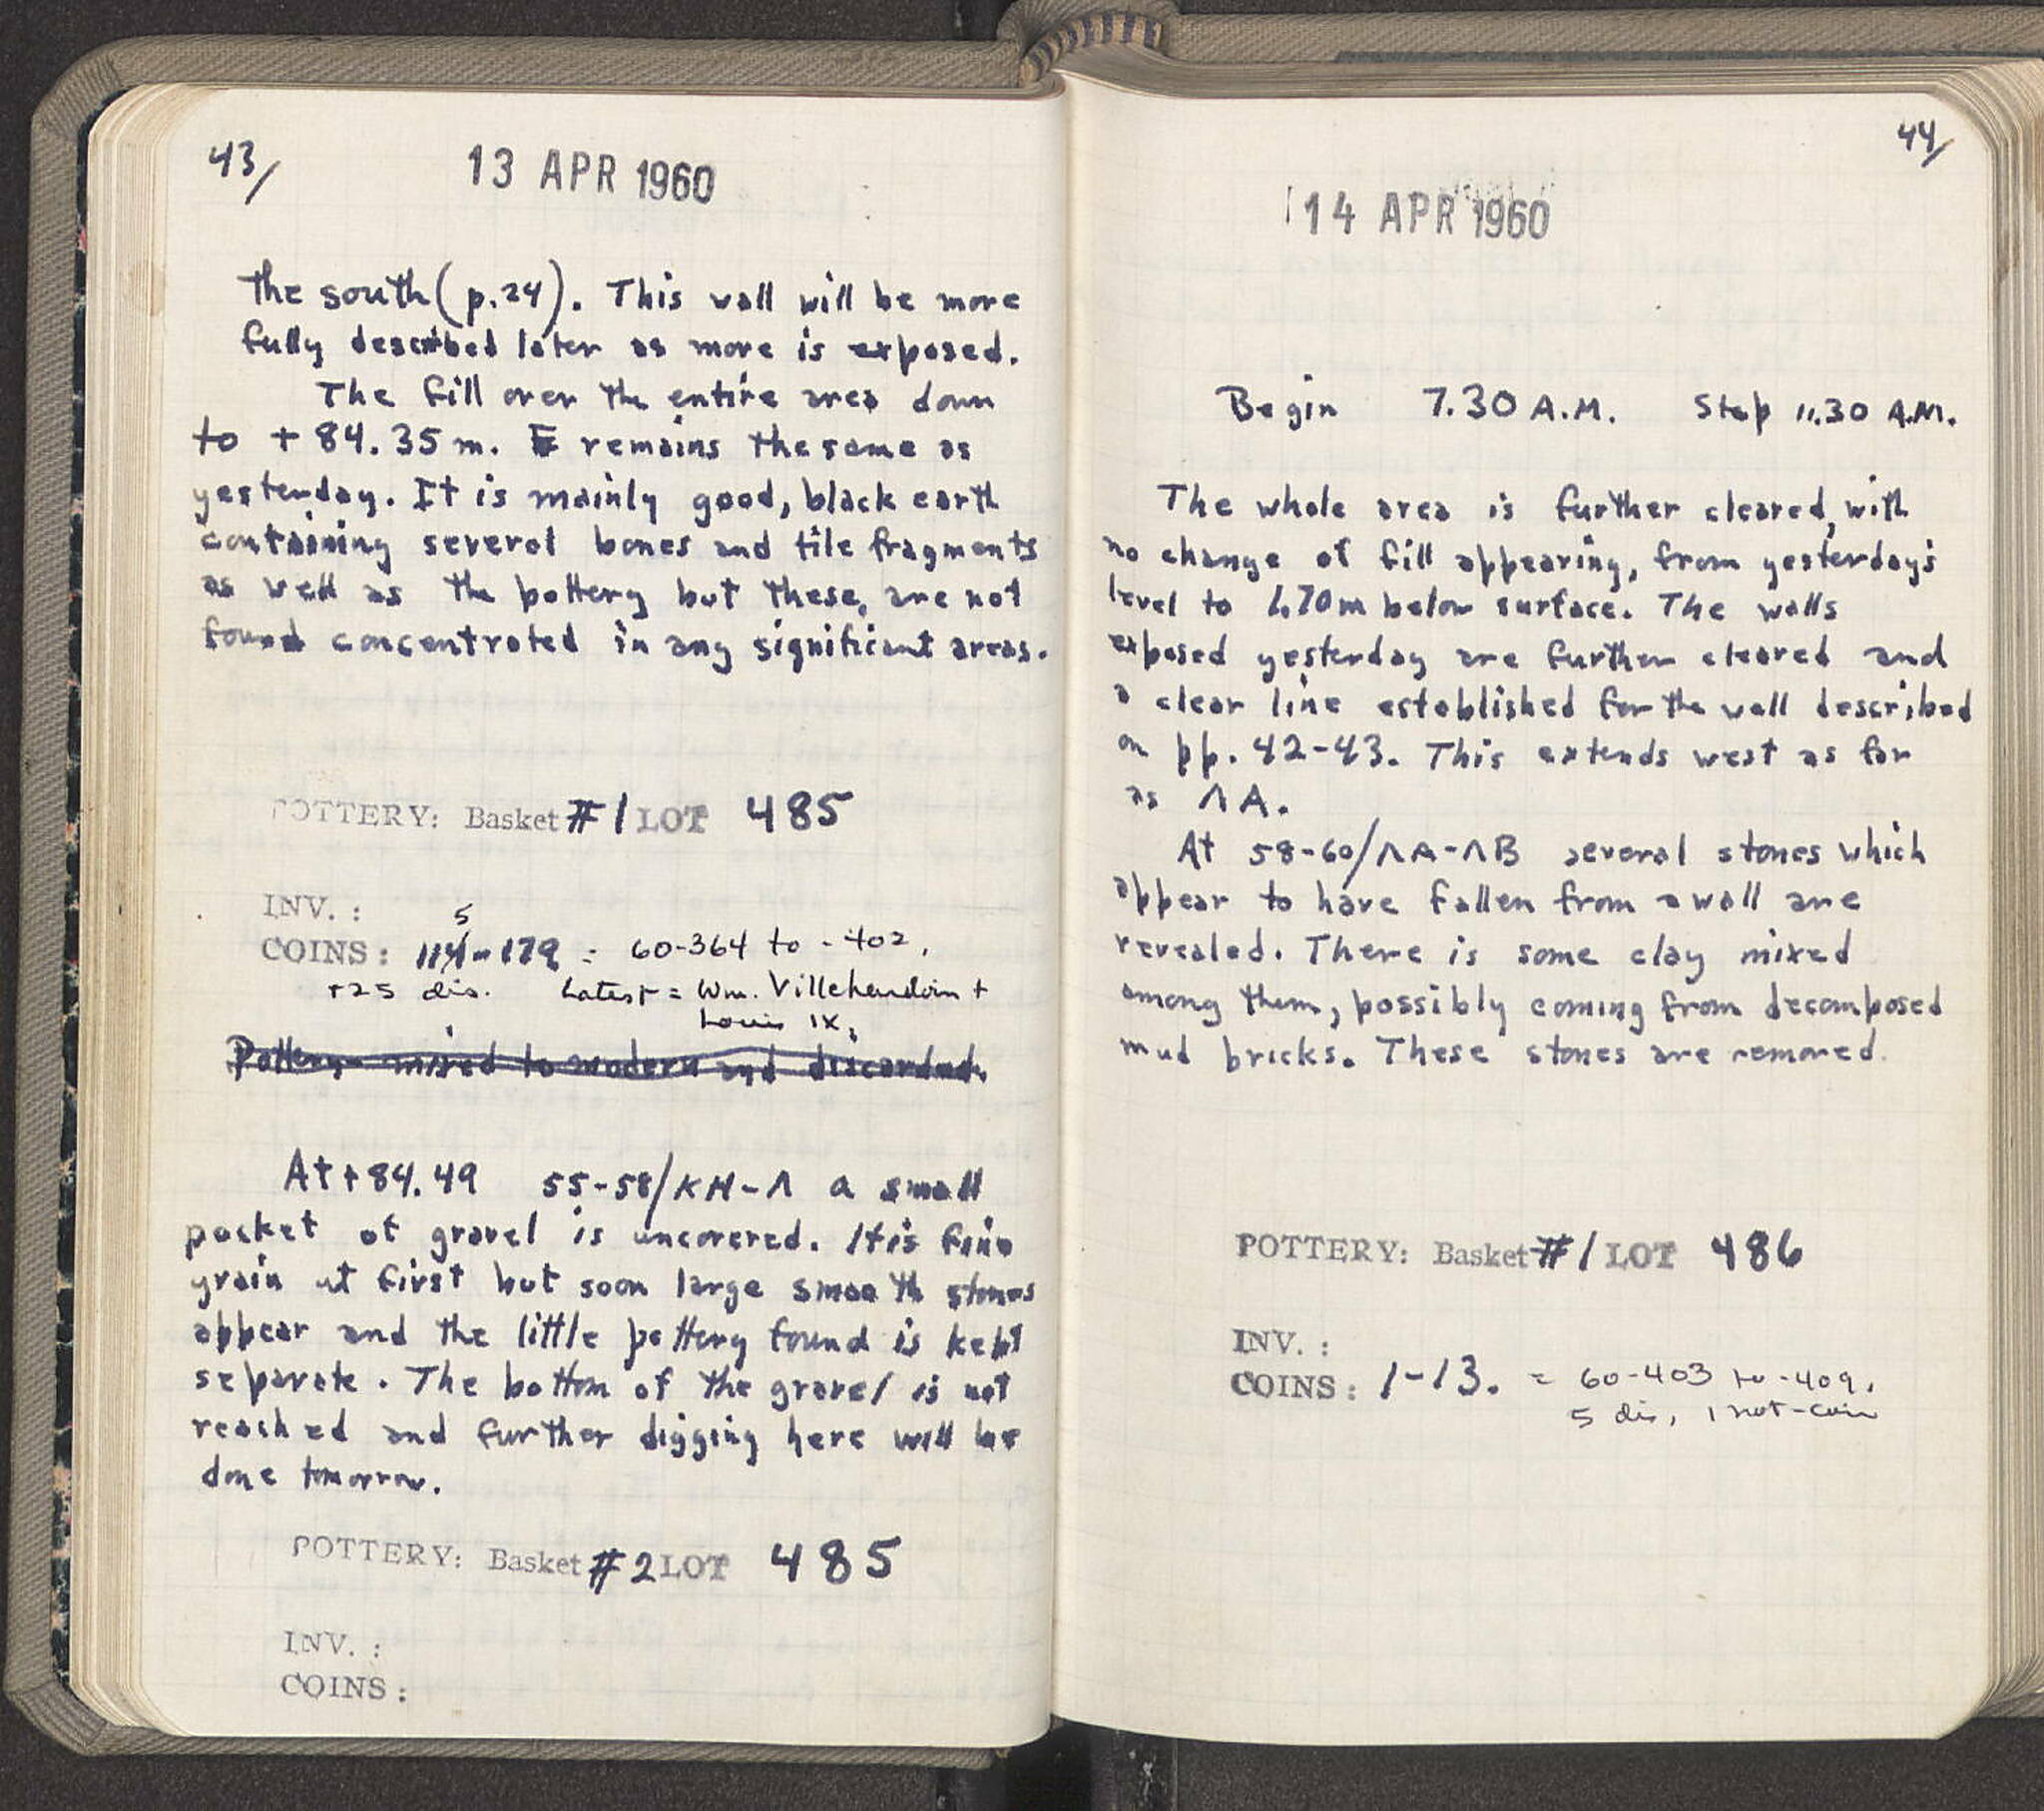 43/
13 APR 1960
the south (p. 24). This wall will be more
fully described later as more is exposed.
The fill over the entire area down
to + 84.35 m. remains the same as
yesterday. It is mainly good, black earth
containing several bones and tile fragments
as well as the pottery but these, are not
found concentrated in any significant areas.
POTTERY: Basket #1 LOT 485
INV. :
5
COINS: 114-179 = 60-364 to -402,
+25 dis. Latest = Wm. Villehardouin +
Louis IX,
Pottery mixed to modern and discarded.
At + 84.49 55-58/KH-Λ a small
pocket of gravel is uncovered. It is fine
grain at first but soon large smooth stones
appear and the little pottery found is kept
separate. The bottom of the gravel is not
reached and further digging here will be
done tomorrow.
POTTERY: Basket #2 LOT 485
INV. :
COINS:
44/
14 APR 1960
Begin 7.30 A.M. Stop 11.30 A.M.
The whole area is further cleared, with
no change of fill appearing, from yesterday's
level to 1.70m below surface. The walls
exposed yesterday are further cleared and
a clear line established for the wall described
on pp. 42-43. This extends west as far
as ΛA.
At 58-60/ΛA-ΛB several stones which
appear to have fallen from a wall are
revealed. There is some clay mixed
among them, possibly coming from decomposed
mud bricks. These stones are removed.
POTTERY: Basket #1 LOT 486
INV. :
COINS: 1-13. = 60-403 to -409,
5 dis, 1 not-coin